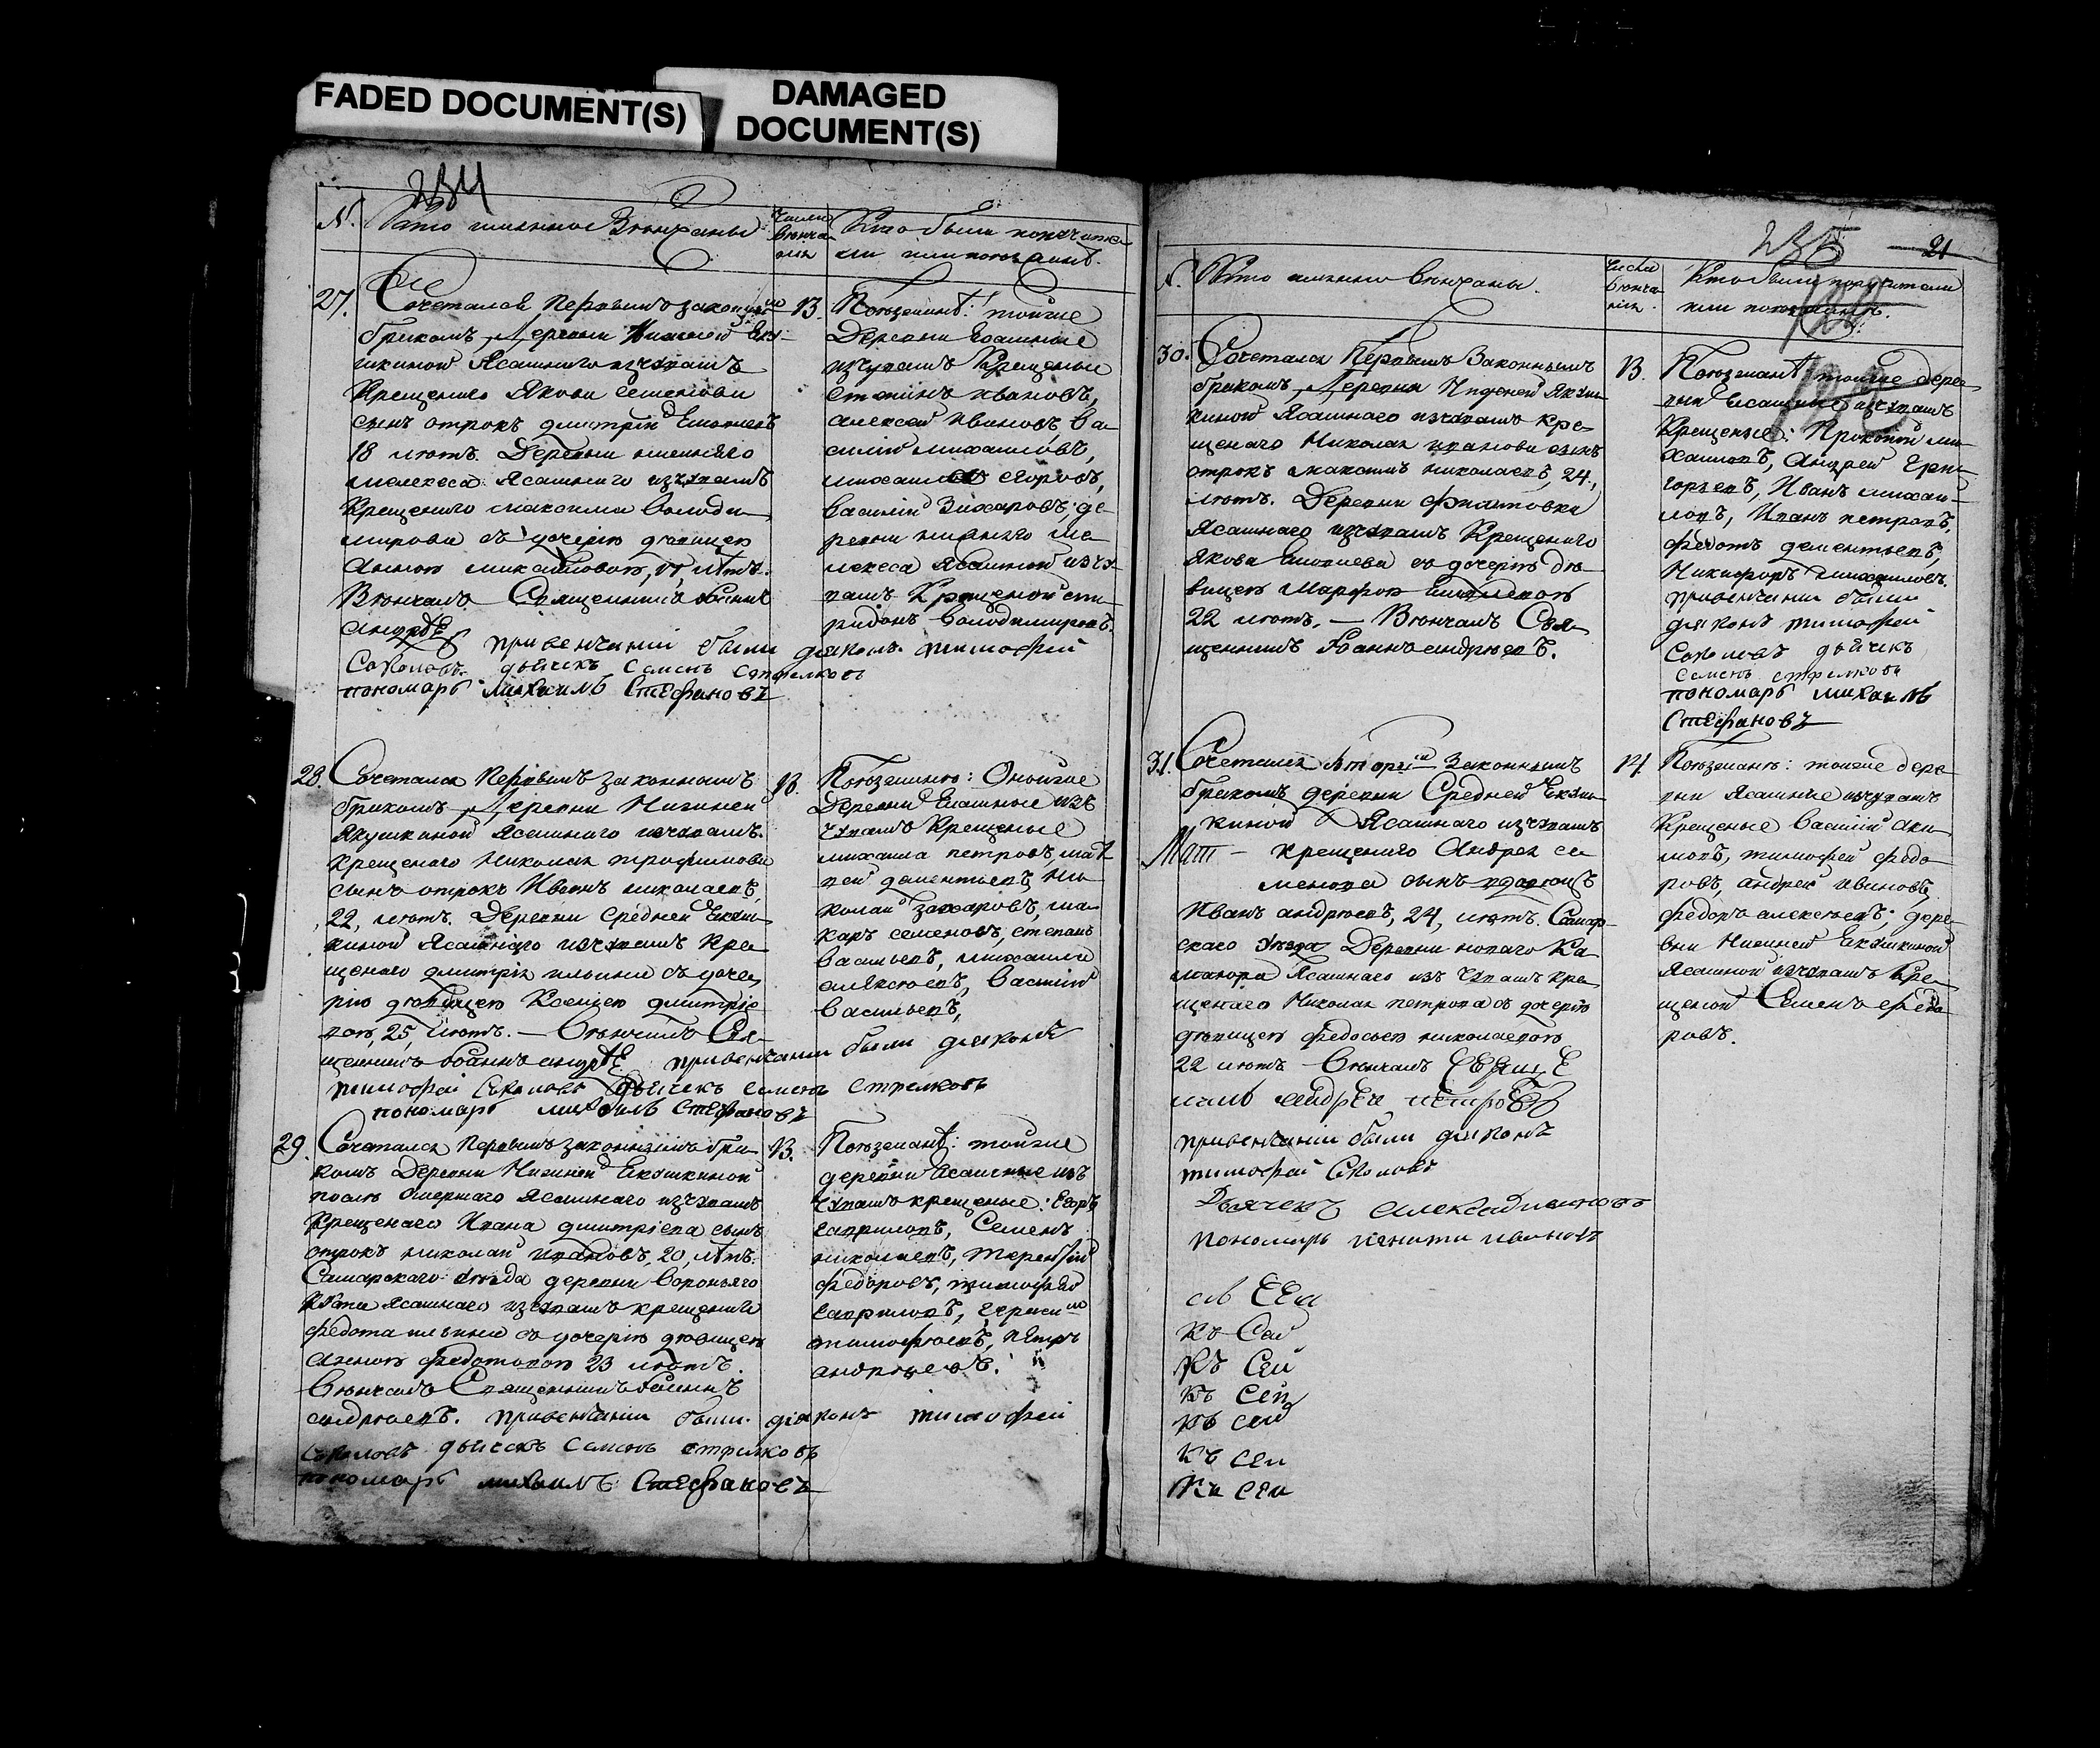 FADED DOCUMENT(S)
DAMAGED
DOCUMENT(S)
234
№. Кто именно Венчаны
Число
венча
нія
Кто были поручите
ли или поезжане.
27. Сочетался первымъ законным
бракомъ Деревни Нижней Еку
шкиной Ясашнаго изчувашъ
Крещенаго Якова Семенова
сынъ отрокъ дмитрій
18 летъ. Деревни нижняго
мелекеса Ясашнаго изчувашъ
Крещенаго максима Володи
мирова съ дочерію девицею
Анною летъ.
Венчалъ Священникъ Іоаннъ
андрЕ
привенчаніи были діяконъ тимофей
Соколовъ дьячекъ Семенъ Стрелковъ
пономарь михаилъ СтЕфановъ
13.
Поезжане: тойже
Деревни Ясашные
изчувашъ Крещеные
Степанъ ивановъ,
алексей Ивановъ, Ва
силій михайловъ,
михайла егоровъ,
Василій Захаровъ; де
ревни нижняго ме
лекеса Ясашной изчу
вашъ Крещеной спи
ридонъ Володимировъ.
28. Сочетался первымъ законнымъ
бракомъ Деревни Нижней
Якушкиной Ясашнаго изчувашъ
крещенаго Николая трофимова
сынъ отрокъ Иванъ николаевъ,
22, летъ. Деревни Средней Екуш
киной Ясашнаго изчувашъ Кре
щенаго дмитрія ильина съ доче
рію девицею Ксенією дмитріе
вою, 25, летъ. — Венчалъ Свя
щенникъ Іоаннъ андрЕ привенчаніи были діяконъ
тимофей Соколовъ Дьячекъ семенъ Стрелковъ
пономарь михаилъ СтЕфановъ
13.
Поезжане: Онойже
Деревни Ясашные изъ
чувашъ Крещеные
михаила петровъ, мат
вей дементьевъ, Ни
колай захаровъ, ма
каръ семеновъ, степанъ
Васильевъ, михайла
алексеевъ, Василій
Васильевъ,
29. Сочетался первымъ законнымъ бра
комъ Деревни Нижней Екушкиной
после умершаго Ясашнаго изчувашъ
Крещенаго Ивана дмитріева сынъ
отрокъ николай ивановъ, 20, летъ.
Самарскаго уезда деревни Вороньяго
куста Ясашнаго изчувашъ крещенаго
федота ильина съ дочерію девицею
Анною федотовою 23 летъ.
Венчалъ Священникъ Іоаннъ
андреевъ. привенчаніи были діяконъ тимофей
Соколовъ дьячекъ Семенъ стрелковъ
пономарь михаилъ СтЕфановъ
13.
Поезжане: тойже
деревни Ясашные изъ
чувашъ крещеные: Егоръ
гавриловъ, Семенъ
николаевъ, терентей
федоровъ, тимофей
гавриловъ, герасим
тимофеевъ, пЕтръ
андреевъ.
235
21
№. Кто именно венчаны.
Число
венча
нія.
Кто были поручители
или поезжане.
30. Сочетался Первымъ Законнымъ
бракомъ Деревни Нижней Якуш
киной Ясашнаго изчувашъ кре
щенаго Николая иванова сынъ
отрокъ максимъ николаевъ, 24,
летъ. Деревни Филиповки
Ясашнаго изчувашъ Крещенаго
Якова съ дочерію де
вицею Марфою
22 летъ. — Венчалъ Свя
щенникъ Іоаннъ андреевъ.
13.
Поезжане тойже дере
вни Ясашные изчувашъ
Крещеные: Прокопій ми
хайловъ, Андрей григо
рьевъ, Иванъ михаи
ловъ, Иванъ петровъ,
федотъ дементьевъ,
Никифоръ михайловъ
привенчаніи были
діяконъ тимофей
Соколовъ дьячекъ
Семенъ стрелковъ
пономарь михаилъ
СтЕфановъ
31. Сочетался вторым Законнымъ
бракомъ деревни Средней Екуш
киной Ясашнаго изчувашъ
крещенаго Андрея се
менова сынъ вдовецъ
Иванъ андреевъ, 24, летъ. Самар
скаго уезда Деревни новаго Ка
Ясашнаго изъ чувашъ кре
щенаго Николая петрова съ дочерію
девицею федосьею николаевою
22 летъ Венчалъ СВЯщЕ
никъ андрЕй пЕтровъ
привенчаніи были діяконъ
тимофей Соколовъ
Дьячекъ
пономарь никита ивановъ
14
Поезжане: тойже дере
вни Ясашные изчувашъ
Крещеные Василій аки
мовъ, тимофей федо
ровъ, андрей ивановъ
федоръ алексеевъ; дере
вни Нижней Екушкиной
Ясашной изчувашъ Кре
щеной Семенъ федо
ровъ.
Къ Сей
Къ Сей
Къ Сей
Къ сей
Къ сЕй
Къ сЕй